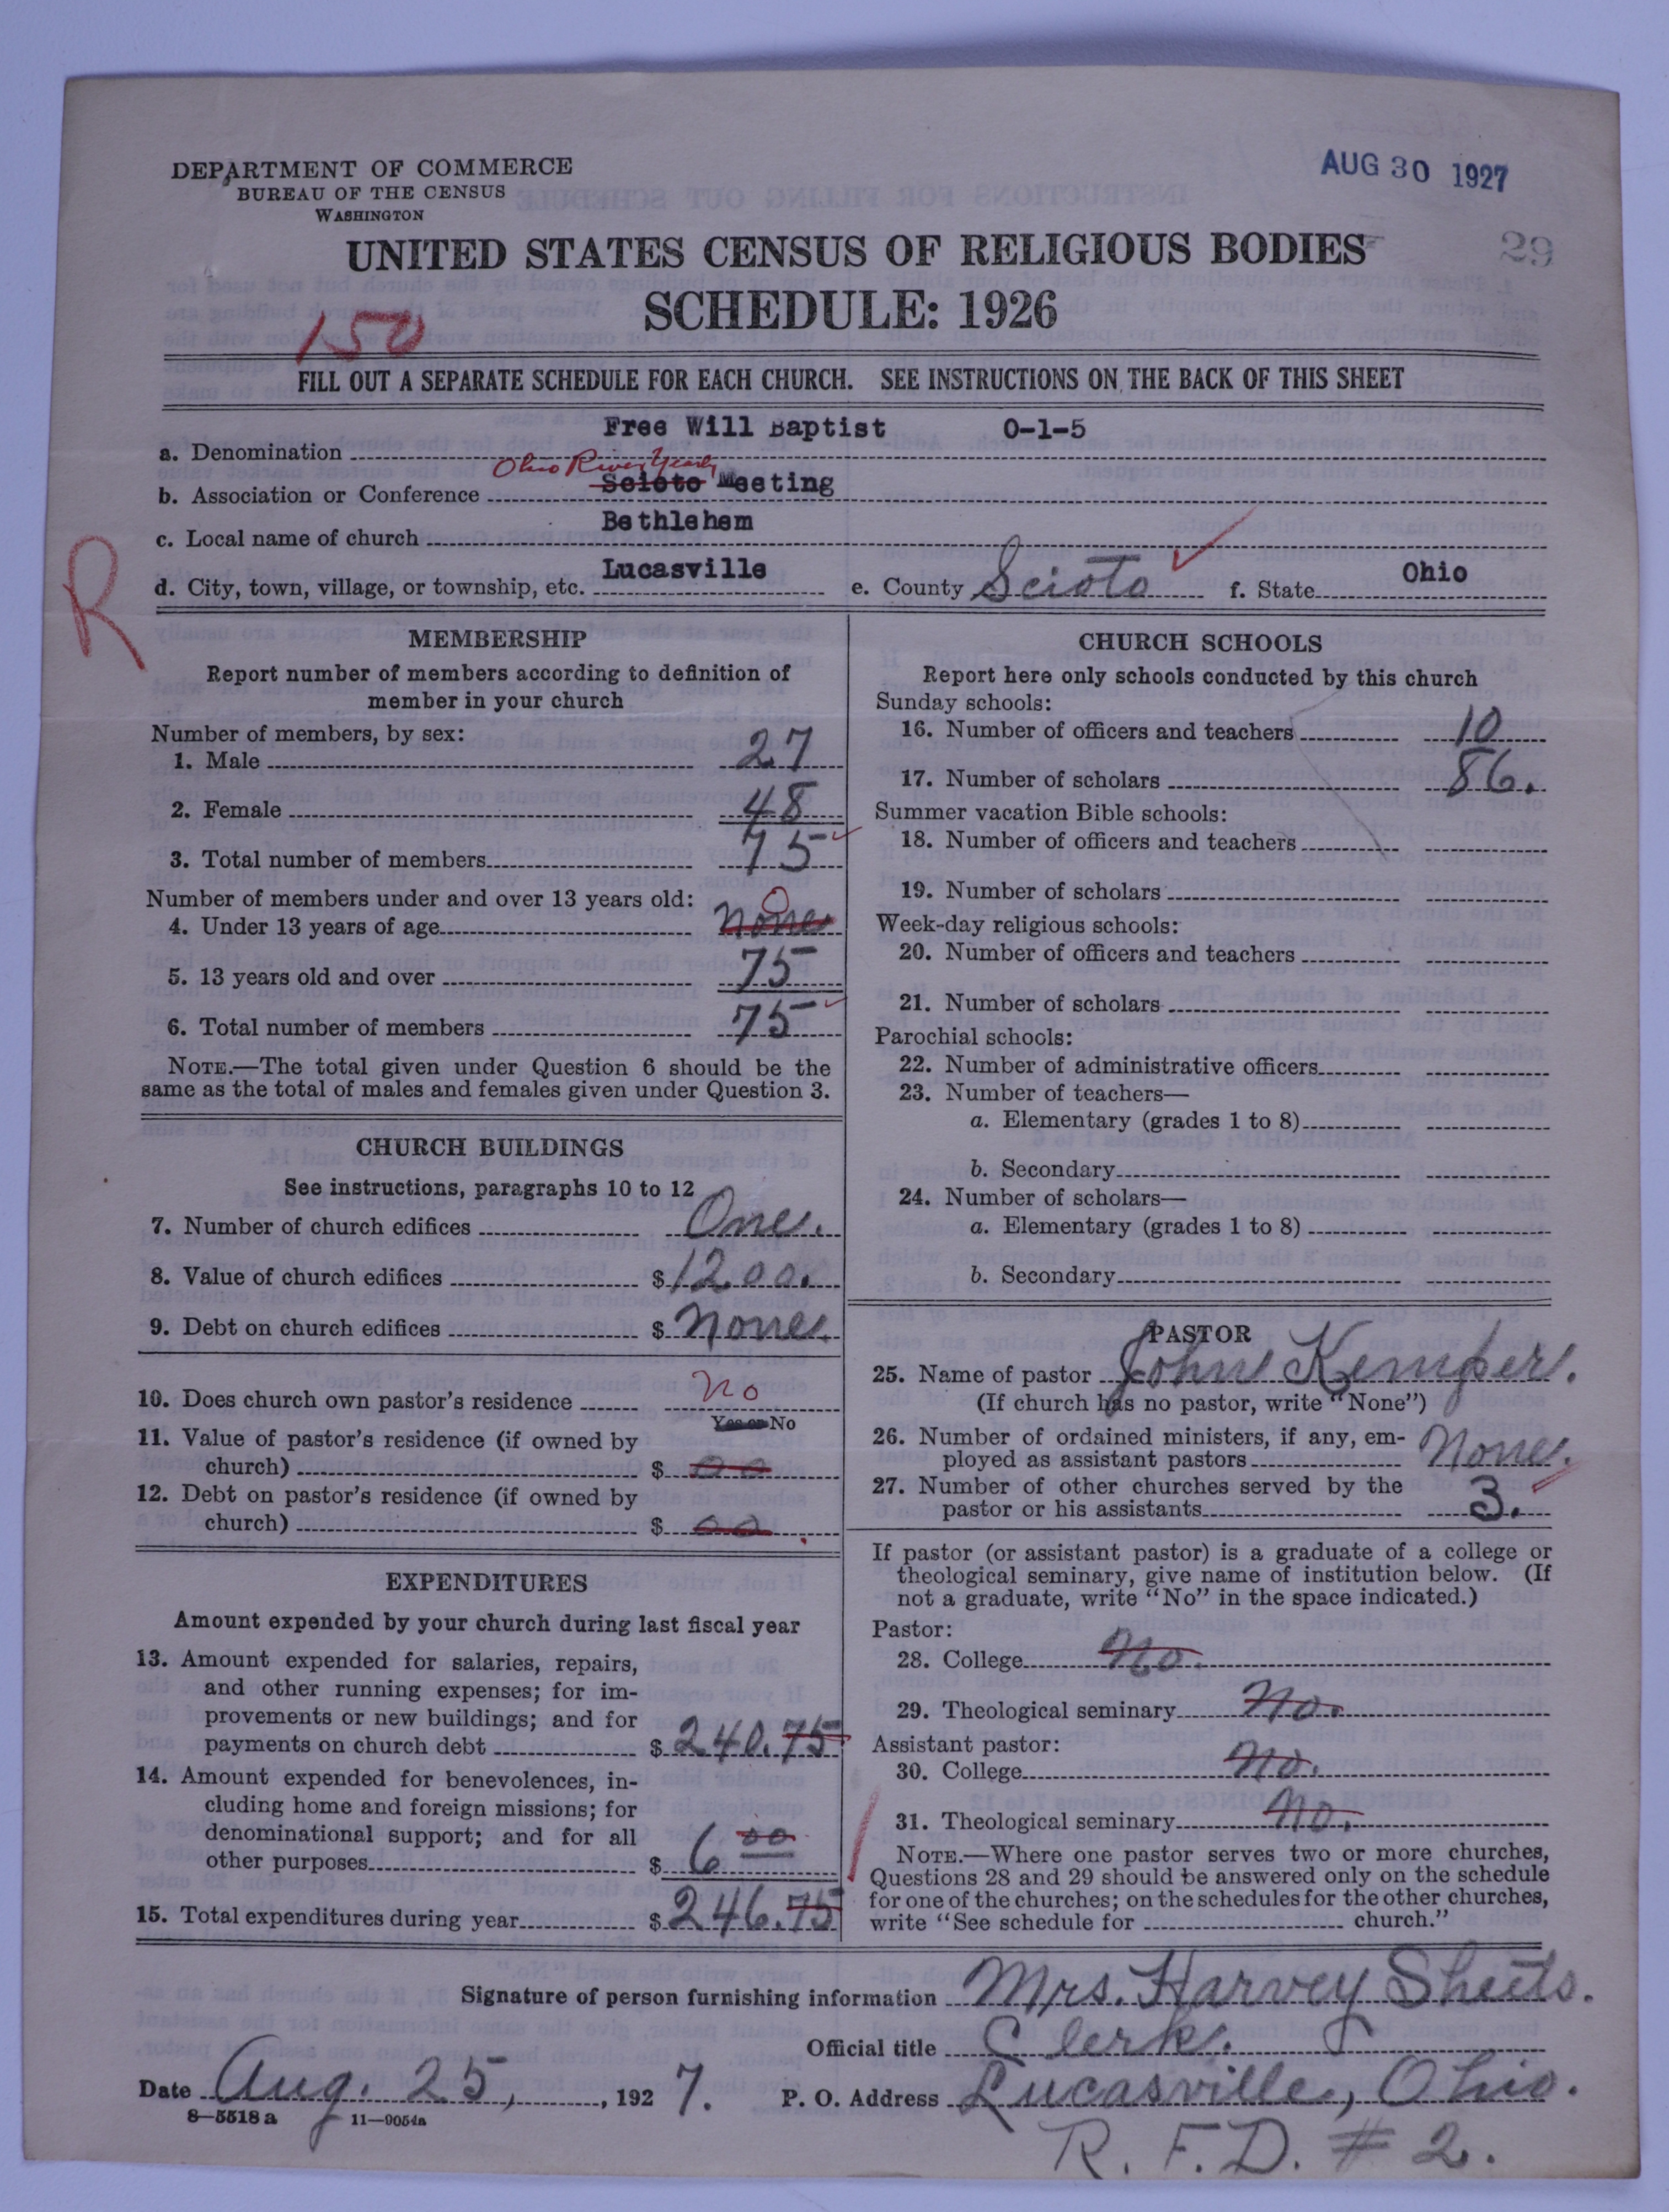 DEPARTMENT OF COMMERCE
BUREAU OF THE CENSUS
WASHINGTON
AUG 30 1927
UNITED STATES CENSUS OF RELIGIOUS BODIES
29
SCHEDULE: 1926
150
FILL OUT A SEPARATE SCHEDULE FOR EACH CHURCH. SEE INSTRUCTIONS ON THE BACK OF THIS SHEET
a. Denomination Free Will Baptist 0-1-5
Ohio River Yearly
b. Association or Conference Scioto Meeting
c. Local name of church Bethlehem
d. City, town, village, or township, etc. Lucasville e. County Scioto f. State Ohio
R
MEMBERSHIP
Report number of members according to definition of
member in your church
Number of members, by sex:
1. Male 27
2. Female 48
3. Total number of members 75
Number of members under and over 13 years old:
4. Under 13 years of age none 0
5. 13 years old and over 75
6. Total number of members 75
NOTE.—The total given under Question 6 should be the
same as the total of males and females given under Question 3.
CHURCH BUILDINGS
See instructions, paragraphs 10 to 12
7. Number of church edifices One.
8. Value of church edifices $1200.
9. Debt on church edifices $ none.
10. Does church own pastor's residence no
Yes or No
11. Value of pastor's residence (if owned by
church) $ 00
12. Debt on pastor's residence (if owned by
church) $ 00
EXPENDITURES
Amount expended by your church during last fiscal year
13. Amount expended for salaries, repairs,
and other running expenses; for im-
provements or new buildings; and for
payments on church debt $240.75
14. Amount expended for benevolences, in-
cluding home and foreign missions; for
denominational support; and for all
other purposes $ 6 00
15. Total expenditures during year $246.75
CHURCH SCHOOLS
Report here only schools conducted by this church
Sunday schools:
16. Number of officers and teachers 10
17. Number of scholars 86.
Summer vacation Bible schools:
18. Number of officers and teachers
19. Number of scholars
Week-day religious schools:
20. Number of officers and teachers
21. Number of scholars
Parochial schools:
22. Number of administrative officers
23. Number of teachers—
a. Elementary (grades 1 to 8)
b. Secondary
24. Number of scholars—
a. Elementary (grades 1 to 8)
b. Secondary
PASTOR
25. Name of pastor John Kemper.
(If church has no pastor, write "None")
26. Number of ordained ministers, if any, em-
ployed as assistant pastors None.
27. Number of other churches served by the
pastor or his assistants 3.
If pastor (or assistant pastor) is a graduate of a college or
theological seminary, give name of institution below. (If
not a graduate, write "No" in the space indicated.)
Pastor:
28. College No.
29. Theological seminary No.
Assistant pastor:
30. College No.
31. Theological seminary No.
NOTE.—Where one pastor serves two or more churches,
Questions 28 and 29 should be answered only on the schedule
for one of the churches; on the schedules for the other churches,
write "See schedule for church."
Signature of person furnishing information Mrs. Harvey Sheets.
Official title Clerk.
Date Aug. 25, 1927. P. O. Address Lucasville, Ohio.
8—5518 a 11—9054a
R. F. D. # 2.